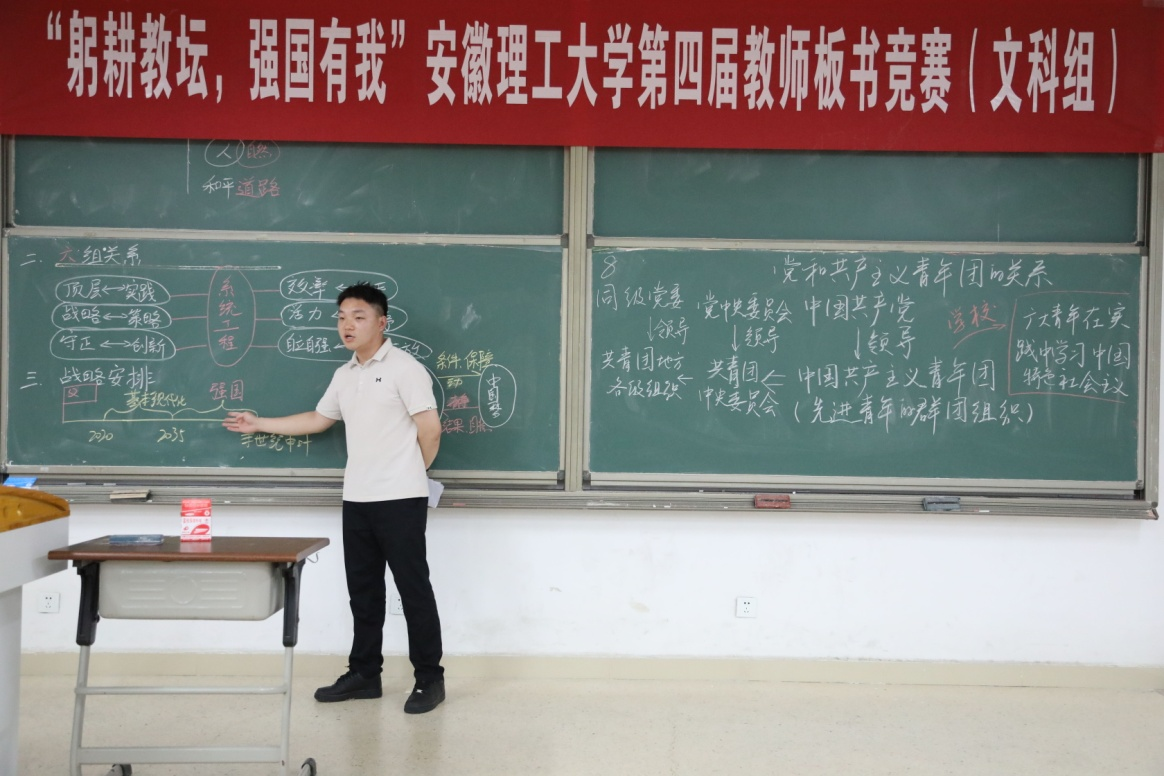 “躬耕教坛，强国有我”安徽理工大学第四届教师板书竞赛（文科组）
人 自然
和平道路
二. 六组关系
顶层↔实践
战略↔策略
守正↔创新
系统工程
效率
活力
自立自强
三. 战略安排
基本现代化
强国
2020 2035 本世纪中叶
条件:保障
8 党和共产主义青年团的关系
同级党委 党中央委员会 中国共产党
↓领导 ↓领导 ↓领导
共青团地方各级组织 ← 共青团中央委员会 ← 中国共产主义青年团
(先进青年的群团组织)
学校→
广大青年在实
践中学习中国
特色社会主义